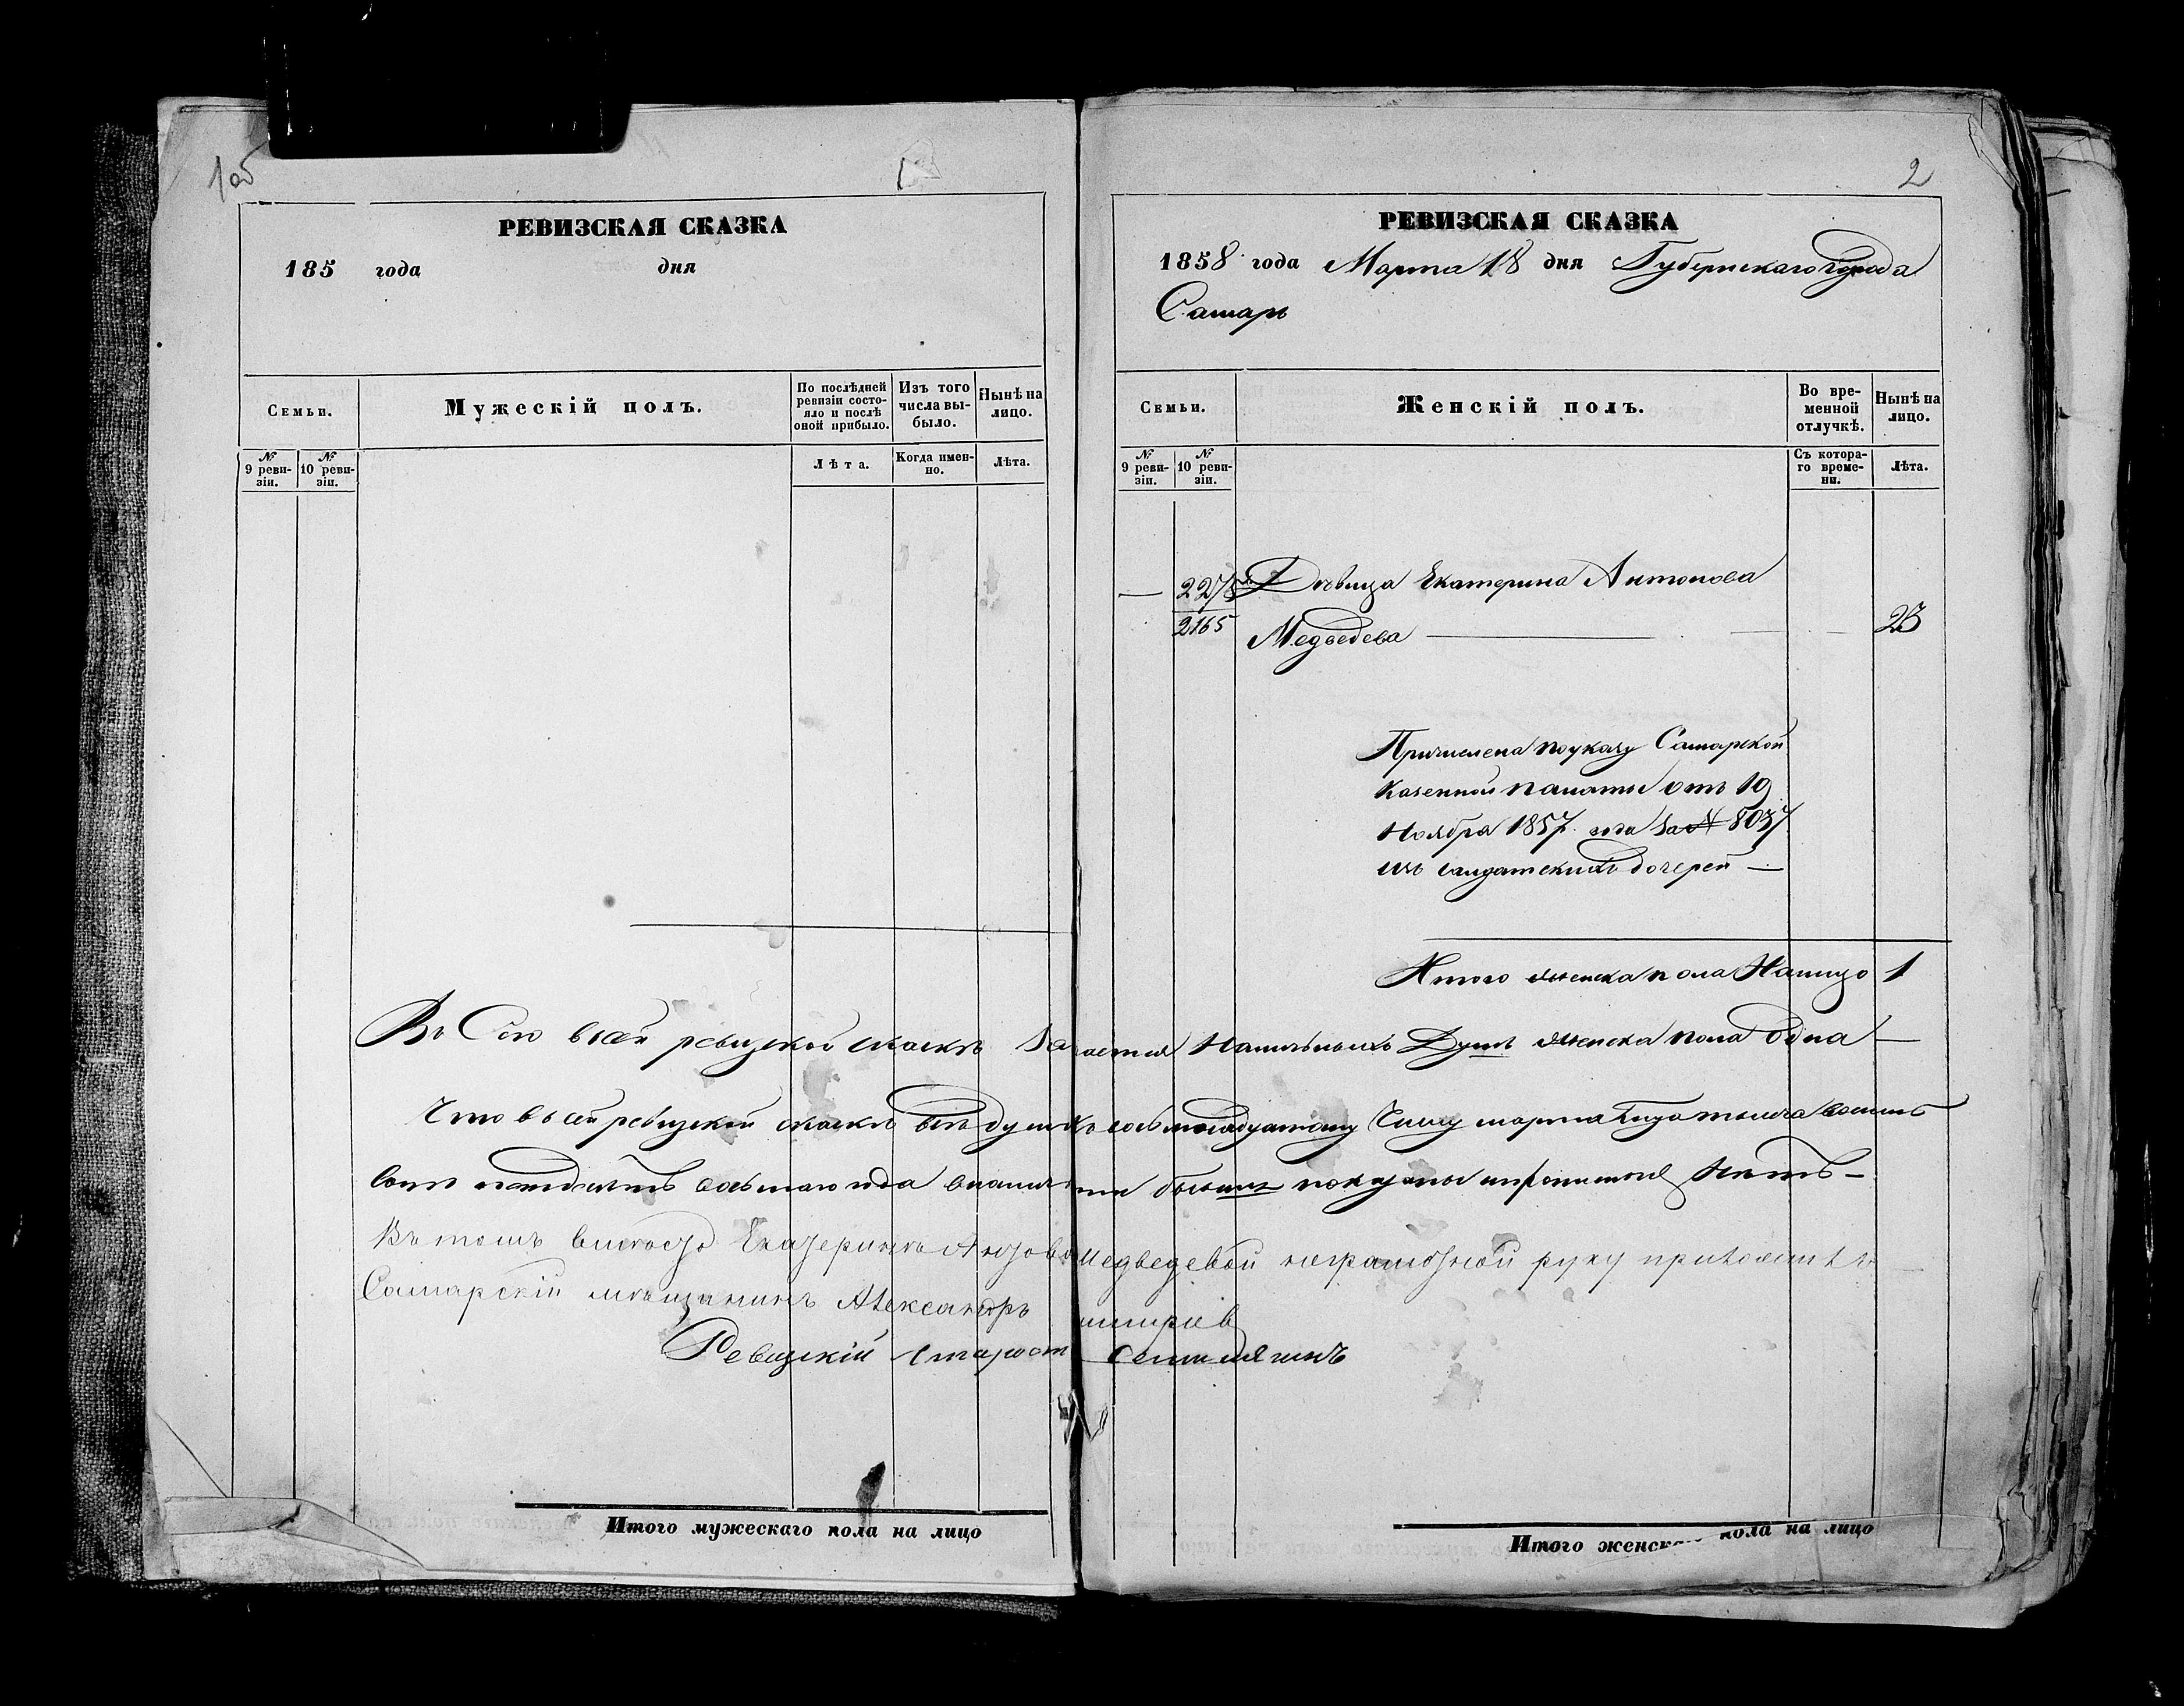 1об
1
РЕВИЗСКАЯ СКАЗКА
185 года дня
Семьи.
Мужескій полъ.
По послѣдней ревизіи состояло и послѣ оной прибыло.
Изъ того числа выбыло.
Нынѣ на лицо.
№ 9 ревизіи.
№ 10 ревизіи.
Лѣта.
Когда именно.
Лѣта.
2
РЕВИЗСКАЯ СКАЗКА
1858 года Марта 18 дня Губернскаго города
Самары
Семьи.
Женскій полъ.
Во временной отлучкѣ.
Нынѣ на лицо.
№ 9 ревизіи.
№ 10 ревизіи.
Съ котораго времени.
Лѣта.
— 2278 Дѣвица Екатерина Антонова
2165 Медведева — 23
Причислена по указу Самарской
Казенной палаты отъ 19
Ноября 1857 года за № 8037
изъ салдатскихъ дочерей —
Итого женска пола Налицо 1
въ сей ревизской сказкѣ Наличныхъ Душъ женска пола одна —
Что в сей ревизской сказкѣ всѣ душѣ къ осмнадцатому Числу марта
восьмаго года нѣтъ —
Въ томъ вместо Екатерины Антоновой Медведевой неграмотной руку приложилъ
Самарскій мѣщанинъ Александръ
Ревизскій старост
Итого мужескаго пола на лицо
Итого женска пола на лицо